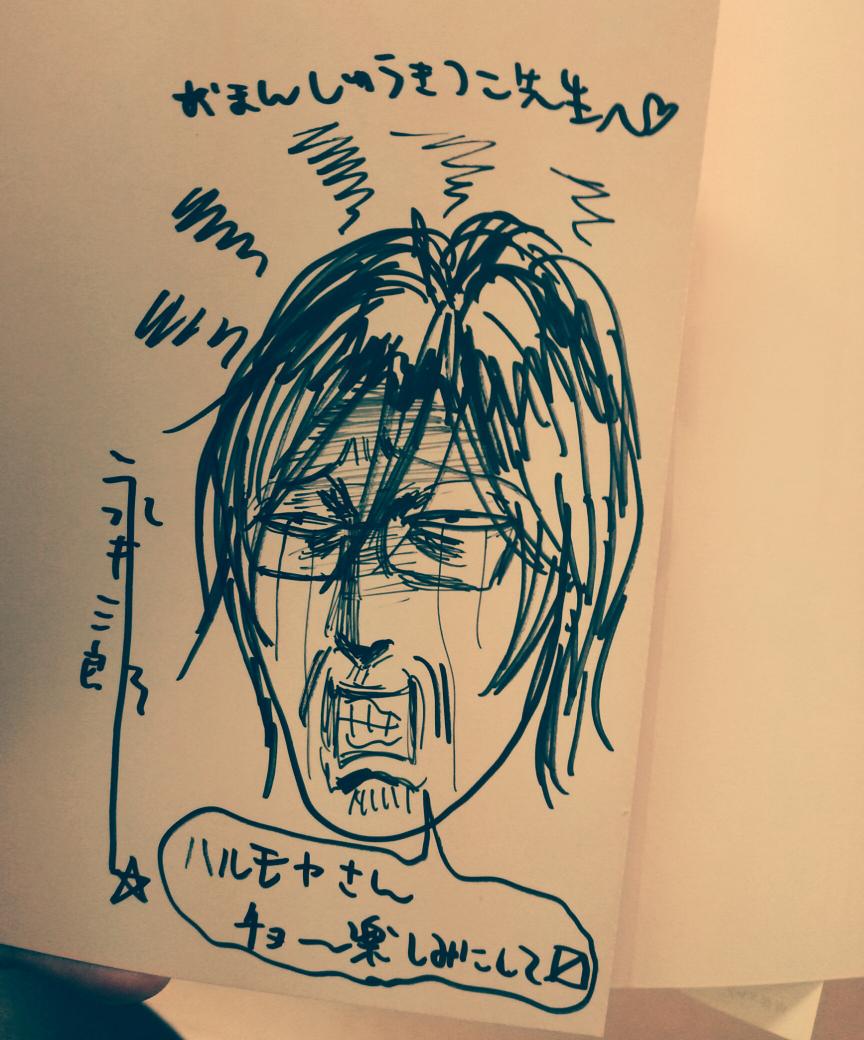 おまんじゅうきつこ先生へ♡
永井三郎
ハルモヤさん
チョ〜楽しみにして〼